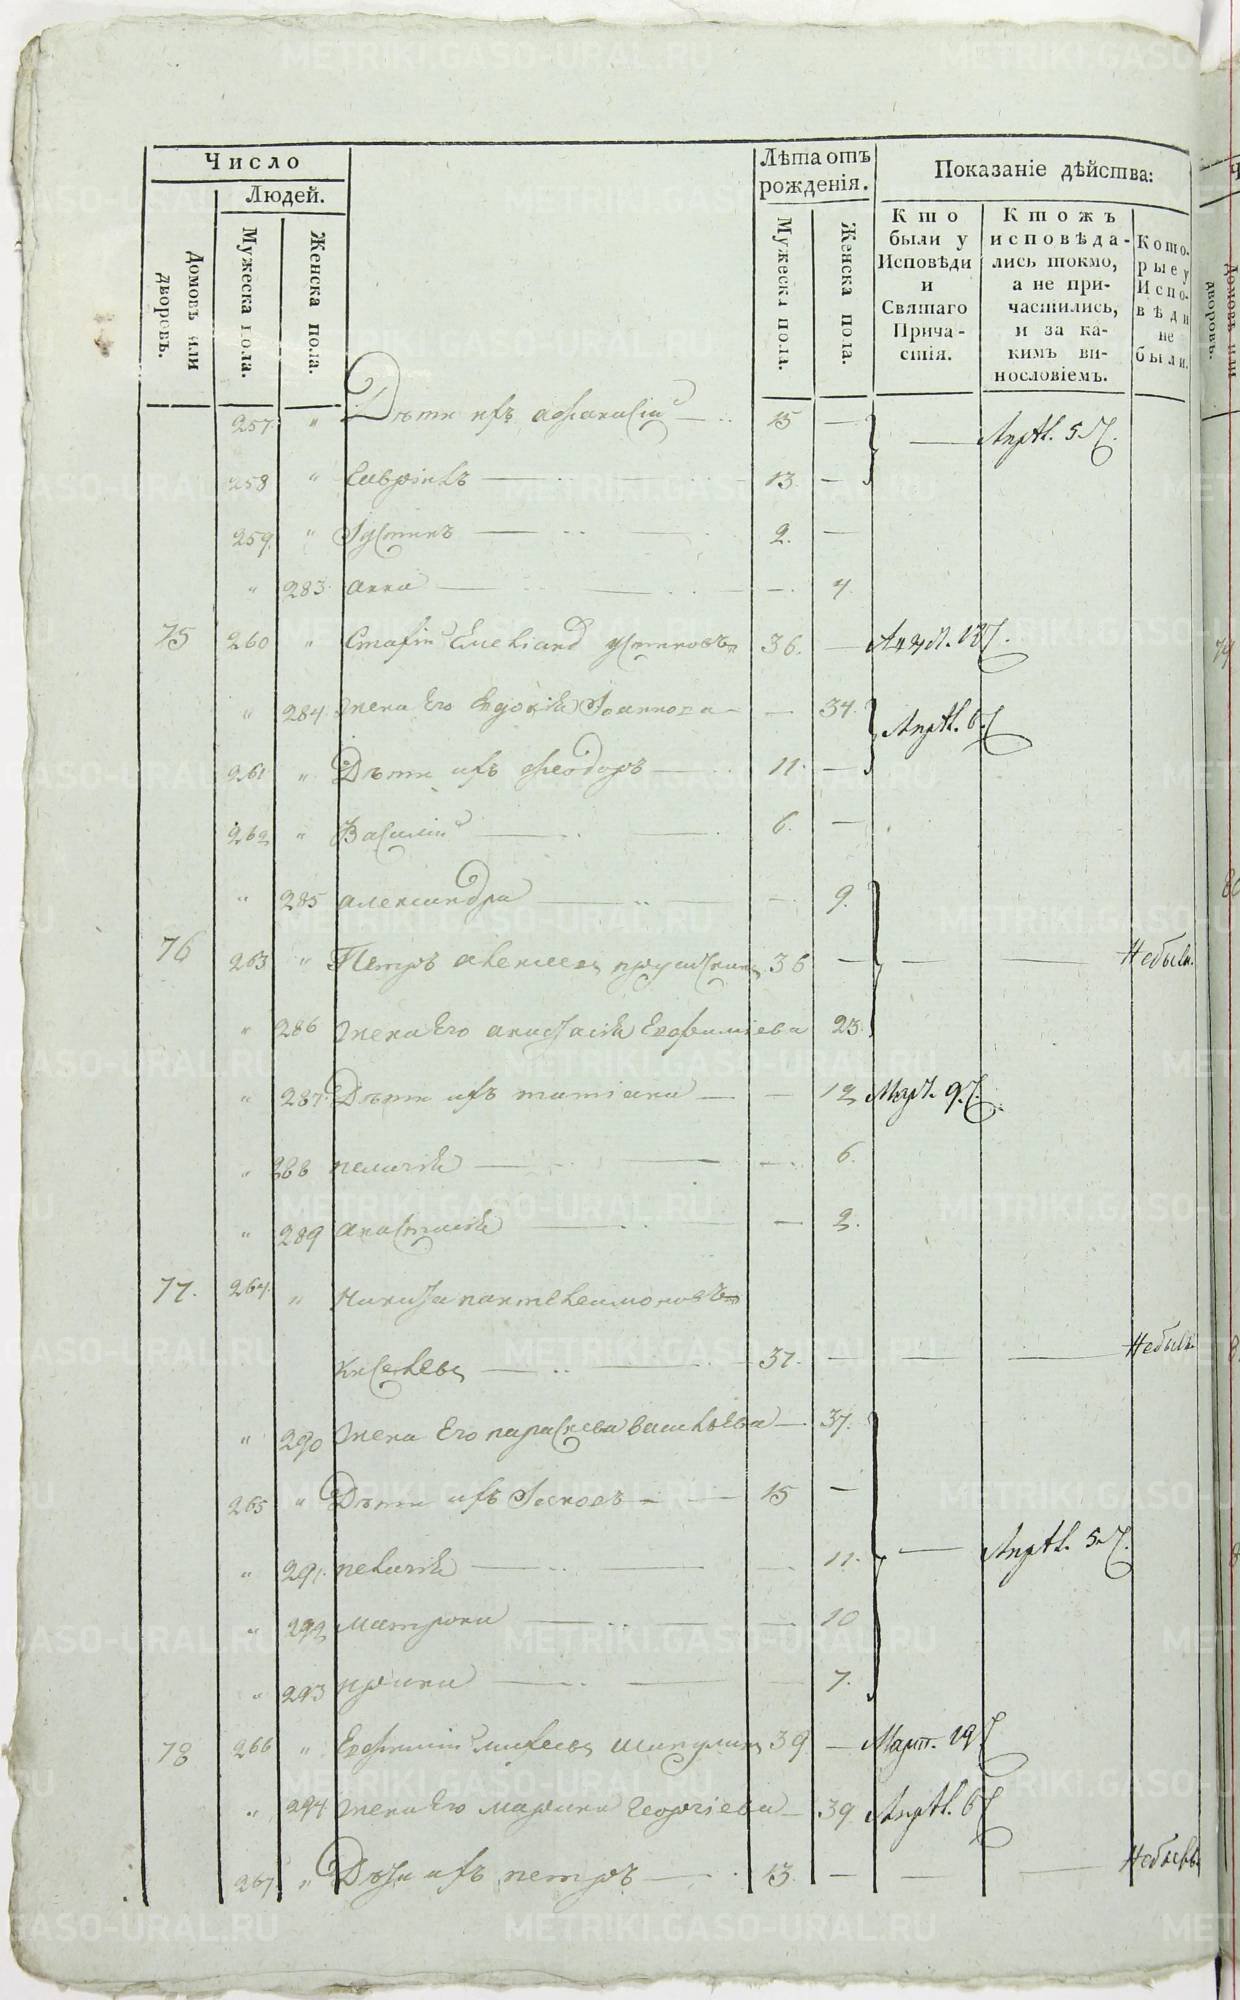 Число
Людей.
Домовъ или дворовъ.
Мужеска пола.
Женска пола.
Лѣта отъ рожденія.
Мужеска пола.
Женска пола.
Показаніе дѣйства:
Кто были у Исповѣди и Святаго Причастія.
Ктожъ исповѣдались токмо, а не причастились, и за какимъ винословіемъ.
Которые у Исповѣди не были.
257. " Дѣти ихъ Афанасій 15 — — Апрѣл. 5 ч.
258 " Гавріилъ 13. —
259. " Іустинъ 2. —
" 283. Анна — 4.
75 260 " Емеліанъ Устиновъ 36. —
" 284. Жена Его Евдокія Іоаннова — 34. Апрѣл. 6 ч
261 " Дѣти ихъ Феодоръ 11. —
262 " Василій 6. —
" 285 Александра — 9.
76 263 " Петръ Алексеевъ 36 — — — Небыли.
" 286 Жена Его Анастасія Евфиміева 23.
" 287. Дѣти ихъ Татіана — 12 Март. 9 ч.
" 288 Пелагія — 6.
" 289 Анастасія — 2.
77. 264. " Никита Пантелеимоновъ
Киселевъ 37. — — — Небылъ.
" 290 Жена Его Параскева Васильева — 37.
265 " Дѣти ихъ Іаковъ 15 —
" 291. Пелагія — 11. — Апрѣл. 5 ч.
" 292 Матрона — 10
" 293 Ирина 7.
78 266 " Евфимій Шипулинъ 39 — Март. 29 ч
" 294 Жена Его Марина Георгіева — 39 Апрѣл. 6 ч
267 " Дѣти ихъ Петръ 13. — — — Небылъ